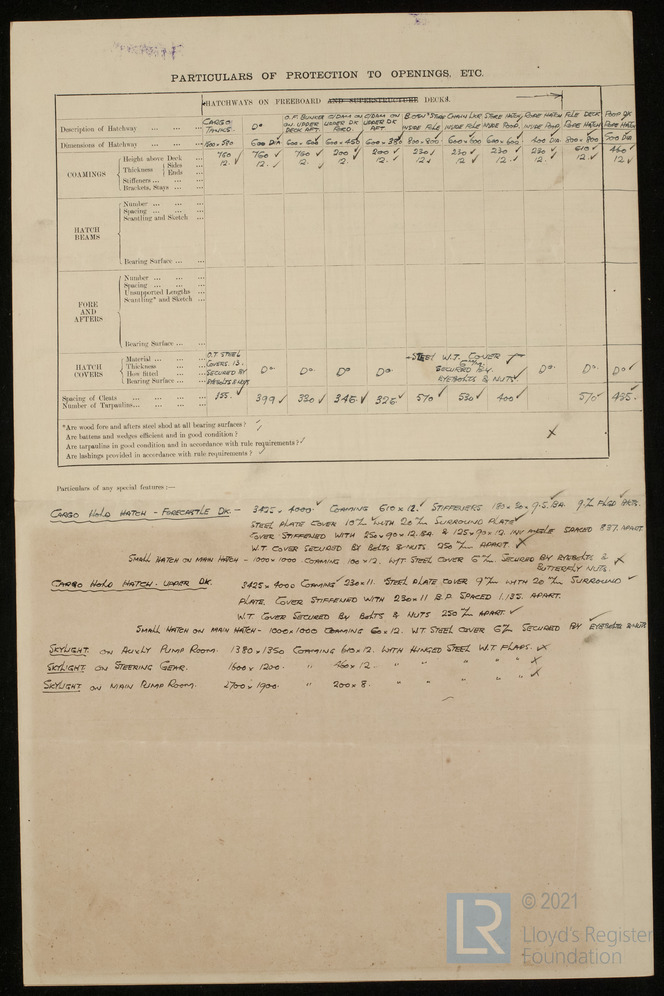 PARTICULARS OF PROTECTION TO OPENINGS, ETC.
HATCHWAYS ON FREEBOARD AND SUPERSTRUCTURE DECKS.
Description of Hatchway ... ... ...
CARGO TANKS. Do O.F. BUNKER ON UPPER DECK AFT. C/DAM ON UPPER DK FORD. C/DAM ON UPPER DK AFT STORE HATCH, INSIDE POOP. ROPE HATCH INSIDE POOP. FCLE DECK ROPE HATCH POOP DK ROPE HATCH
Dimensions of Hatchway ... ... ...
600 DIA. 600 x 600 600 x 450 600 x 380 800 x 800 600 x 600 600 x 600 400 DIA. 800 x 800 500 DIA
COAMINGS
Height above Deck ... 760 760 760 200 200 230 230 230 230 610 460
Thickness Sides ... Ends ... 12. 12. 12. 12. 12. 12 12 12. 12. 12. 12
Stiffeners ... ...
Brackets, Stays ... ...
HATCH BEAMS
Number ... ... ...
Spacing ... ... ...
Scantling and Sketch ...
Bearing Surface ... ...
FORE AND AFTERS
Number ... ... ...
Spacing ... ... ...
Unsupported Lengths ...
Scantling* and Sketch ...
Bearing Surface ... ...
HATCH COVERS
Material ... ... ...
Thickness ... ...
How fitted ... ...
Bearing Surface ... ...
O.T. STEEL COVERS. 13. SECURED BY EYEBOLTS & NUTS
Do. Do. Do Do.
STEEL W.T. COVER 6 M/M. SECURED BY. EYEBOLTS & NUTS
Do. Do. Do
Spacing of Cleats ... ... ... ...
355. 399 330 345. 325. 570 530 400 570 435.
Number of Tarpaulins... ... ... ...
*Are wood fore and afters steel shod at all bearing surfaces?
Are battens and wedges efficient and in good condition?
Are tarpaulins in good condition and in accordance with rule requirements?
Are lashings provided in accordance with rule requirements?
Particulars of any special features :—
CARGO HOLD HATCH - FORECASTLE DK. - 3425 x 4000. COAMING 610 x 12. STIFFENERS 180 x 30 x 9.5. BA. 9 M/M FLGD BKTS.
STEEL PLATE COVER 10 M/M WITH 20 M/M SURROUND PLATE
COVER STIFFENED WITH 250 x 90 x 12. BA. & 125 x 90 x 12. INV ANGLE SPACED 887. APART
W.T. COVER SECURED BY BOLTS & NUTS. 250 M/M APART.
SMALL HATCH ON MAIN HATCH - 1000 x 1000 COAMING 100 x 12. W/T STEEL COVER 6 M/M SECURED BY EYEBOLTS & BUTTERFLY NUTS.
CARGO HOLD HATCH. UPPER DK. 3425 x 4000 COAMING 230 x 11. STEEL PLATE COVER 9 M/M WITH 20 M/M SURROUND
PLATE. COVER STIFFENED WITH 230 x 11 B.P SPACED 1.135. APART.
W.T. COVER SECURED BY BOLTS & NUTS 250 M/M APART.
SMALL HATCH ON MAIN HATCH - 1000 x 1000 COAMING 60 x 12. WT. STEEL COVER 6 M/M SECURED BY EYEBOLTS & NUTS
SKYLIGHT. ON AUXLY PUMP ROOM. 1380 x 1350 COAMING 610 x 12. WITH HINGED STEEL W.T. FLAPS.
SKYLIGHT ON STEERING GEAR. 1600 x 1200. " 460 x 12. " " " "
SKYLIGHT ON MAIN PUMP ROOM. 2700 x 1900. " 200 x 8. " " " "
© 2021
LR
Lloyd's Register
Foundation